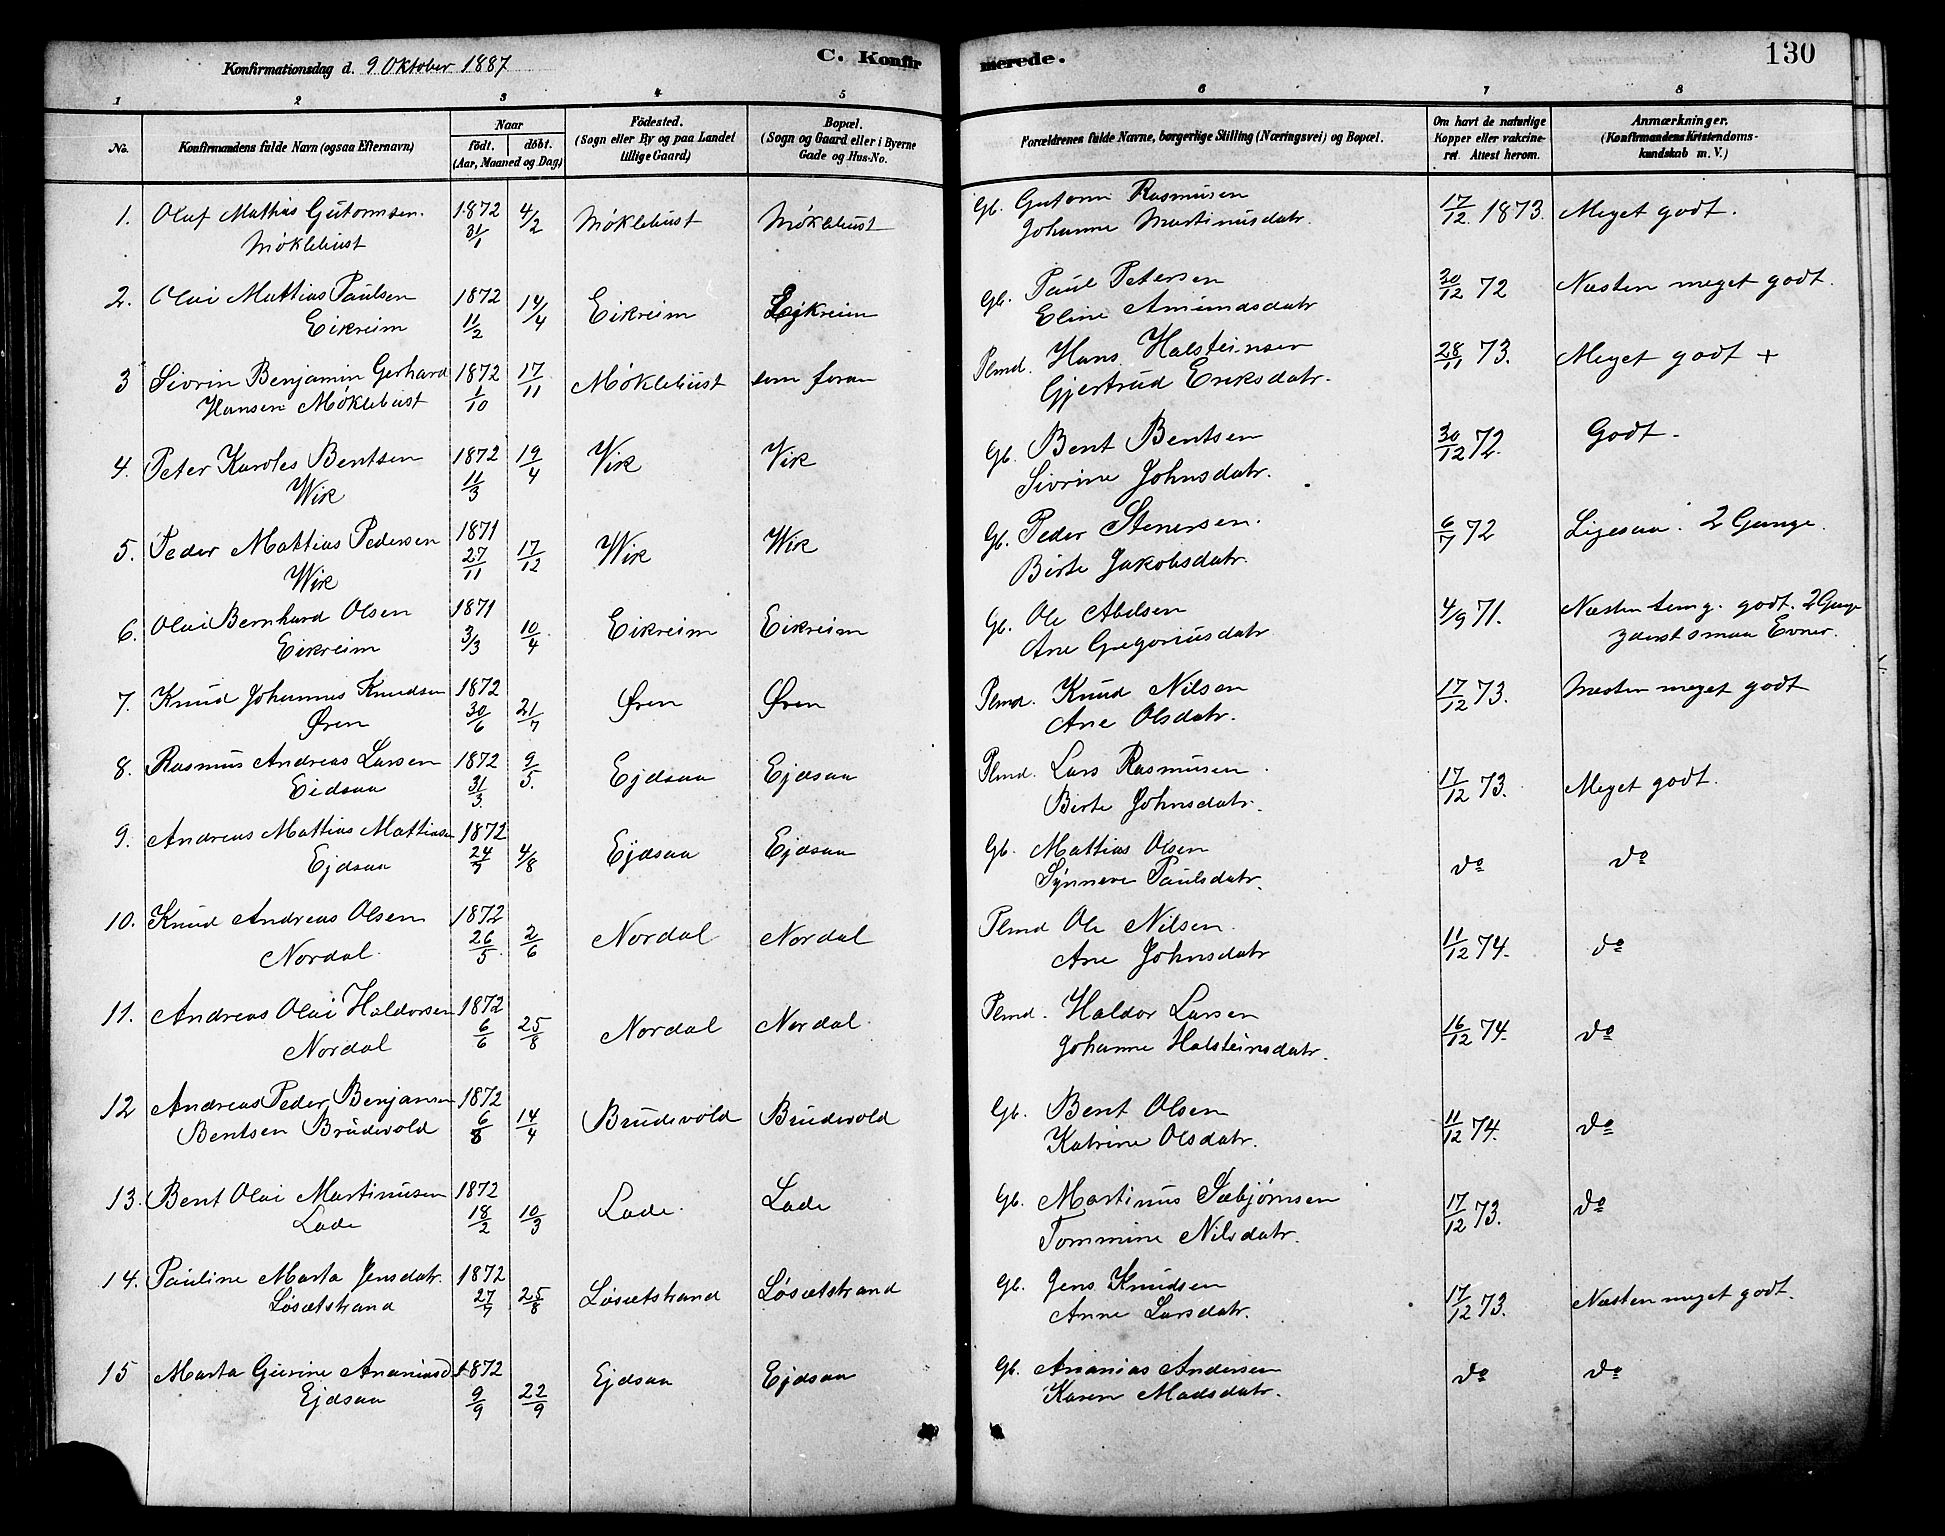 Konfirmationsdag d. 9 Oktober 1887
C. Konfirmerede.
130
1 2 3 4 5 6 7 8
No.
Konfirmandens fulde Navn (ogsaa Efternavn)
Naar
födt. döbt.
(Aar, Maaned og Dag)
Födested.
(Sogn eller By og paa Landet
tillige Gaard)
Bopæl.
(Sogn og Gaard eller i Byerne
Gade og Hus-No.
Forældrenes fulde Navne, borgerlige Stilling (Næringsvei) og Bopæl.
Om havt de naturlige
Kopper eller vakcine-
ret. Attest herom.
Anmærkninger.
(Konfirmandens Kristendoms-
kundskab m. V.)
1. Oluf Mathias Gutormsen 1872 4/2 Möklebust Möklebust Gb. Gutorm Rasmusen 17/12 1873. Meget godt.
Möklebust 31/1 Johanne Martinusdatr.
2. Olai Mattias Paulsen 1872 14/4 Eikreim Ejkreim Gb. Paul Petersen 30/12 72 Næsten meget godt.
Eikreim 11/2 Eline Amundsdatr
3 Sivrin Benjamin Gerhard 1872 17/11 Möklebust som foran Plmd. Hans Halsteinsen 28/11 73. Meget godt +
Hansen Möklebust 1/10 Gjertrud Eriksdatr.
4. Peter Karoles Bentsen 1872 19/4 Vik Vik Gb. Bent Bentsen 30/12 72. Godt.
Wik 11/3 Sivrine Johnsdatr.
5. Peder Mattias Pedersen 1871 17/12 Wik Wik Gb. Peder Stenersen. 6/7 72 Ligesaa. 2 Gange.
Wik 27/11 Birte Jakobsdatr.
6. Olai Bernhard Olsen 1871 10/4 Eikreim Eikreim Gb. Ole Abelsen 4/9 71. Næsten temg. godt. 2 Gange
Eikreim 3/3 Ane Gregoriusdatr. yderst smaa Evner.
7. Knud Johannes Knudsen 1872 21/7 Øren Øren Plmd. Knud Nilsen 17/12 73. Næsten meget godt
Øren 30/6 Ane Olsdatr.
8. Rasmus Andreas Larsen 1872 9/5. Ejdsaa Ejdsaa Plmd. Lars Rasmusen 17/12 73. Meget godt.
Eidsaa 31/3 Birte Johnsdatr.
9. Andreas Mattias Mattiasen 1872 4/8 Ejdsaa Ejdsaa Gb. Mattias Olsen do do
Ejdsaa 24/7 Synneve Paulsdatr.
10. Knud Andreas Olsen 1872 2/6 Nordal Nordal Plmd Ole Nilsen. 11/12 74. do
Nordal. 26/5 Ane Johnsdatr
11. Andreas Olai Haldorsen 1872 25/8 Nordal Nordal. Plmd. Haldor Larsen 16/12 74. do
Nordal 6/6 Johanne Halsteinsdatr.
12 Andreas Peder Benjamin 1872 14/4 Brudevold Brudevold Gb. Bent Olsen 11/12 74. do
Bentsen Brudevold 6/ Katrine Olsdatr.
13. Bent Olai Martinusen 1872 10/3 Lade. Lade Gb. Martinus Sæbjørnsen 17/12 73. do
Lade 18/2 Tommine Nilsdatr.
14. Pauline Marta Jensdatr. 1872 25/8 Løsætstrand Løsætstrand Gb. Jens Knudsen 17/12 73. Næsten meget godt.
Løsætstrand 27/7 Anne Larsdatr.
15 Marta Gurine Ananiasd. 1872 22/9 Ejdsaa Ejdsaa Gb. Ananias Andersen do do
Ejdsaa 9/9 Karen Madsdatr.